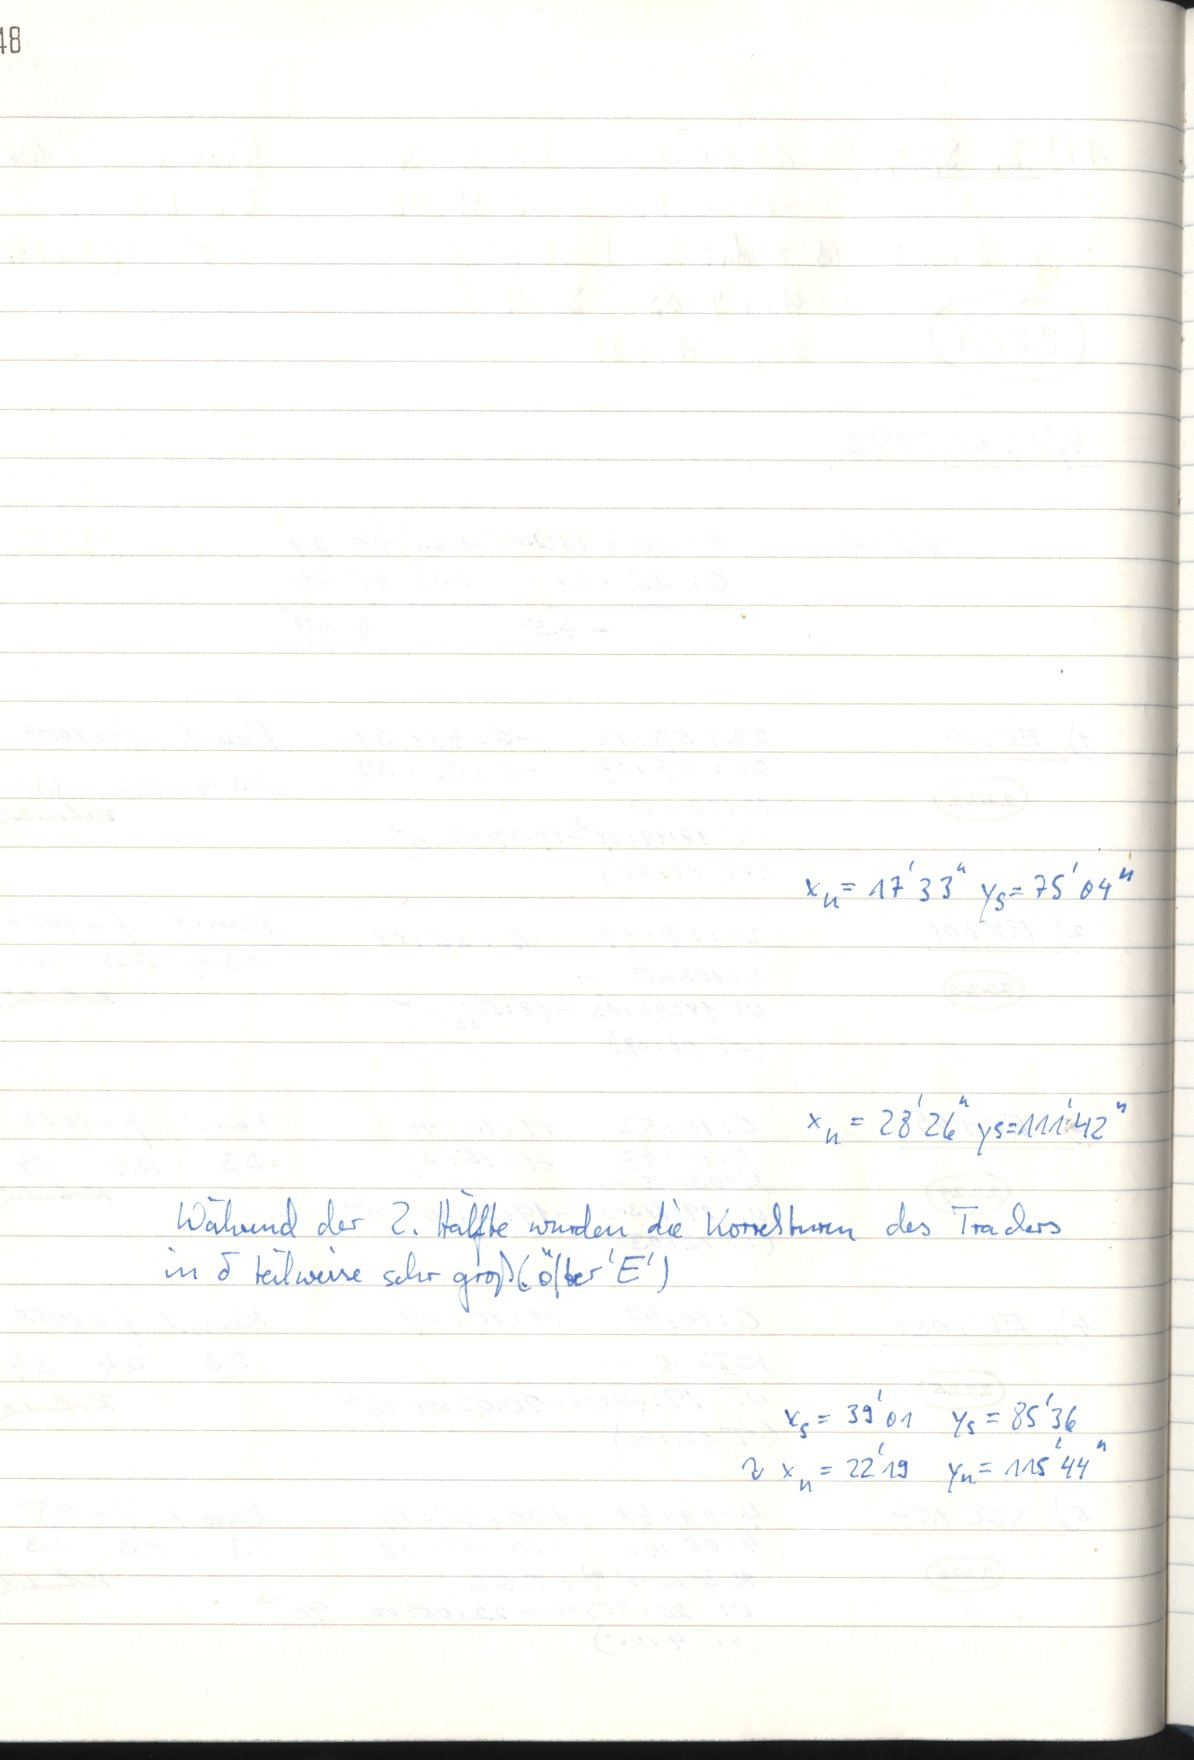 48
xₙ = 17'33" yₛ = 75'04"
xₙ = 28'26" yₛ = 111'42"
Während der 2. Hälfte wurden die Korrekturen des Traders
in δ teilweise sehr groß (öfter 'E')
xₛ = 39'01 yₛ = 85'36
xₙ = 22'19 yₙ = 115'44"